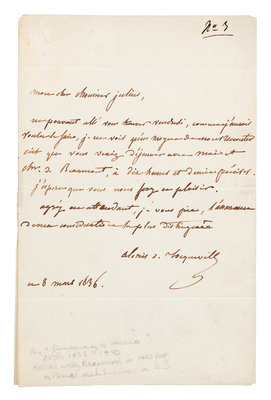 No 3
mon cher monsieur Julius,
ne pouvant allé vous trouver vendredi, comme j'aurais
voulu le faire, je ne vois guère moyen de nous rencontrer
c'est que vous veniez déjeuner avec moi et
Mr. de Beaumont, à dix heures et demie précises.
j'espère que vous nous ferez ce plaisir.
agréez en attendant, je vous prie, l'assurance
de ma considération la plus distinguée
alexis de Tocqueville
ce 8 mars 1836.
in U.S.